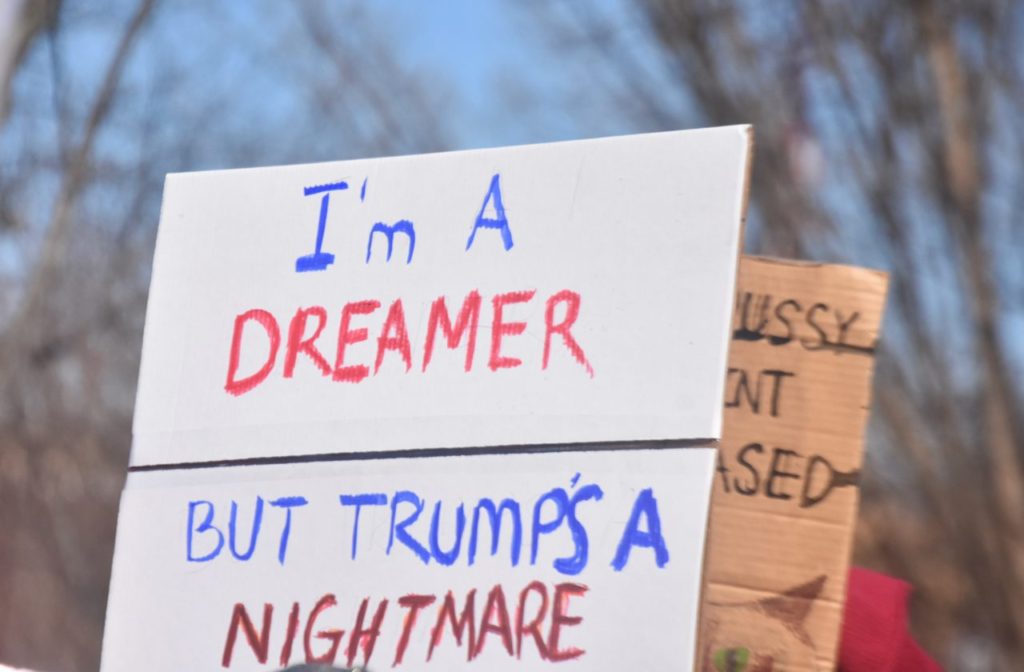 I'm A
DREAMER
BUT TRUMP'S A
NIGHTMARE
USSY
NT
ASED